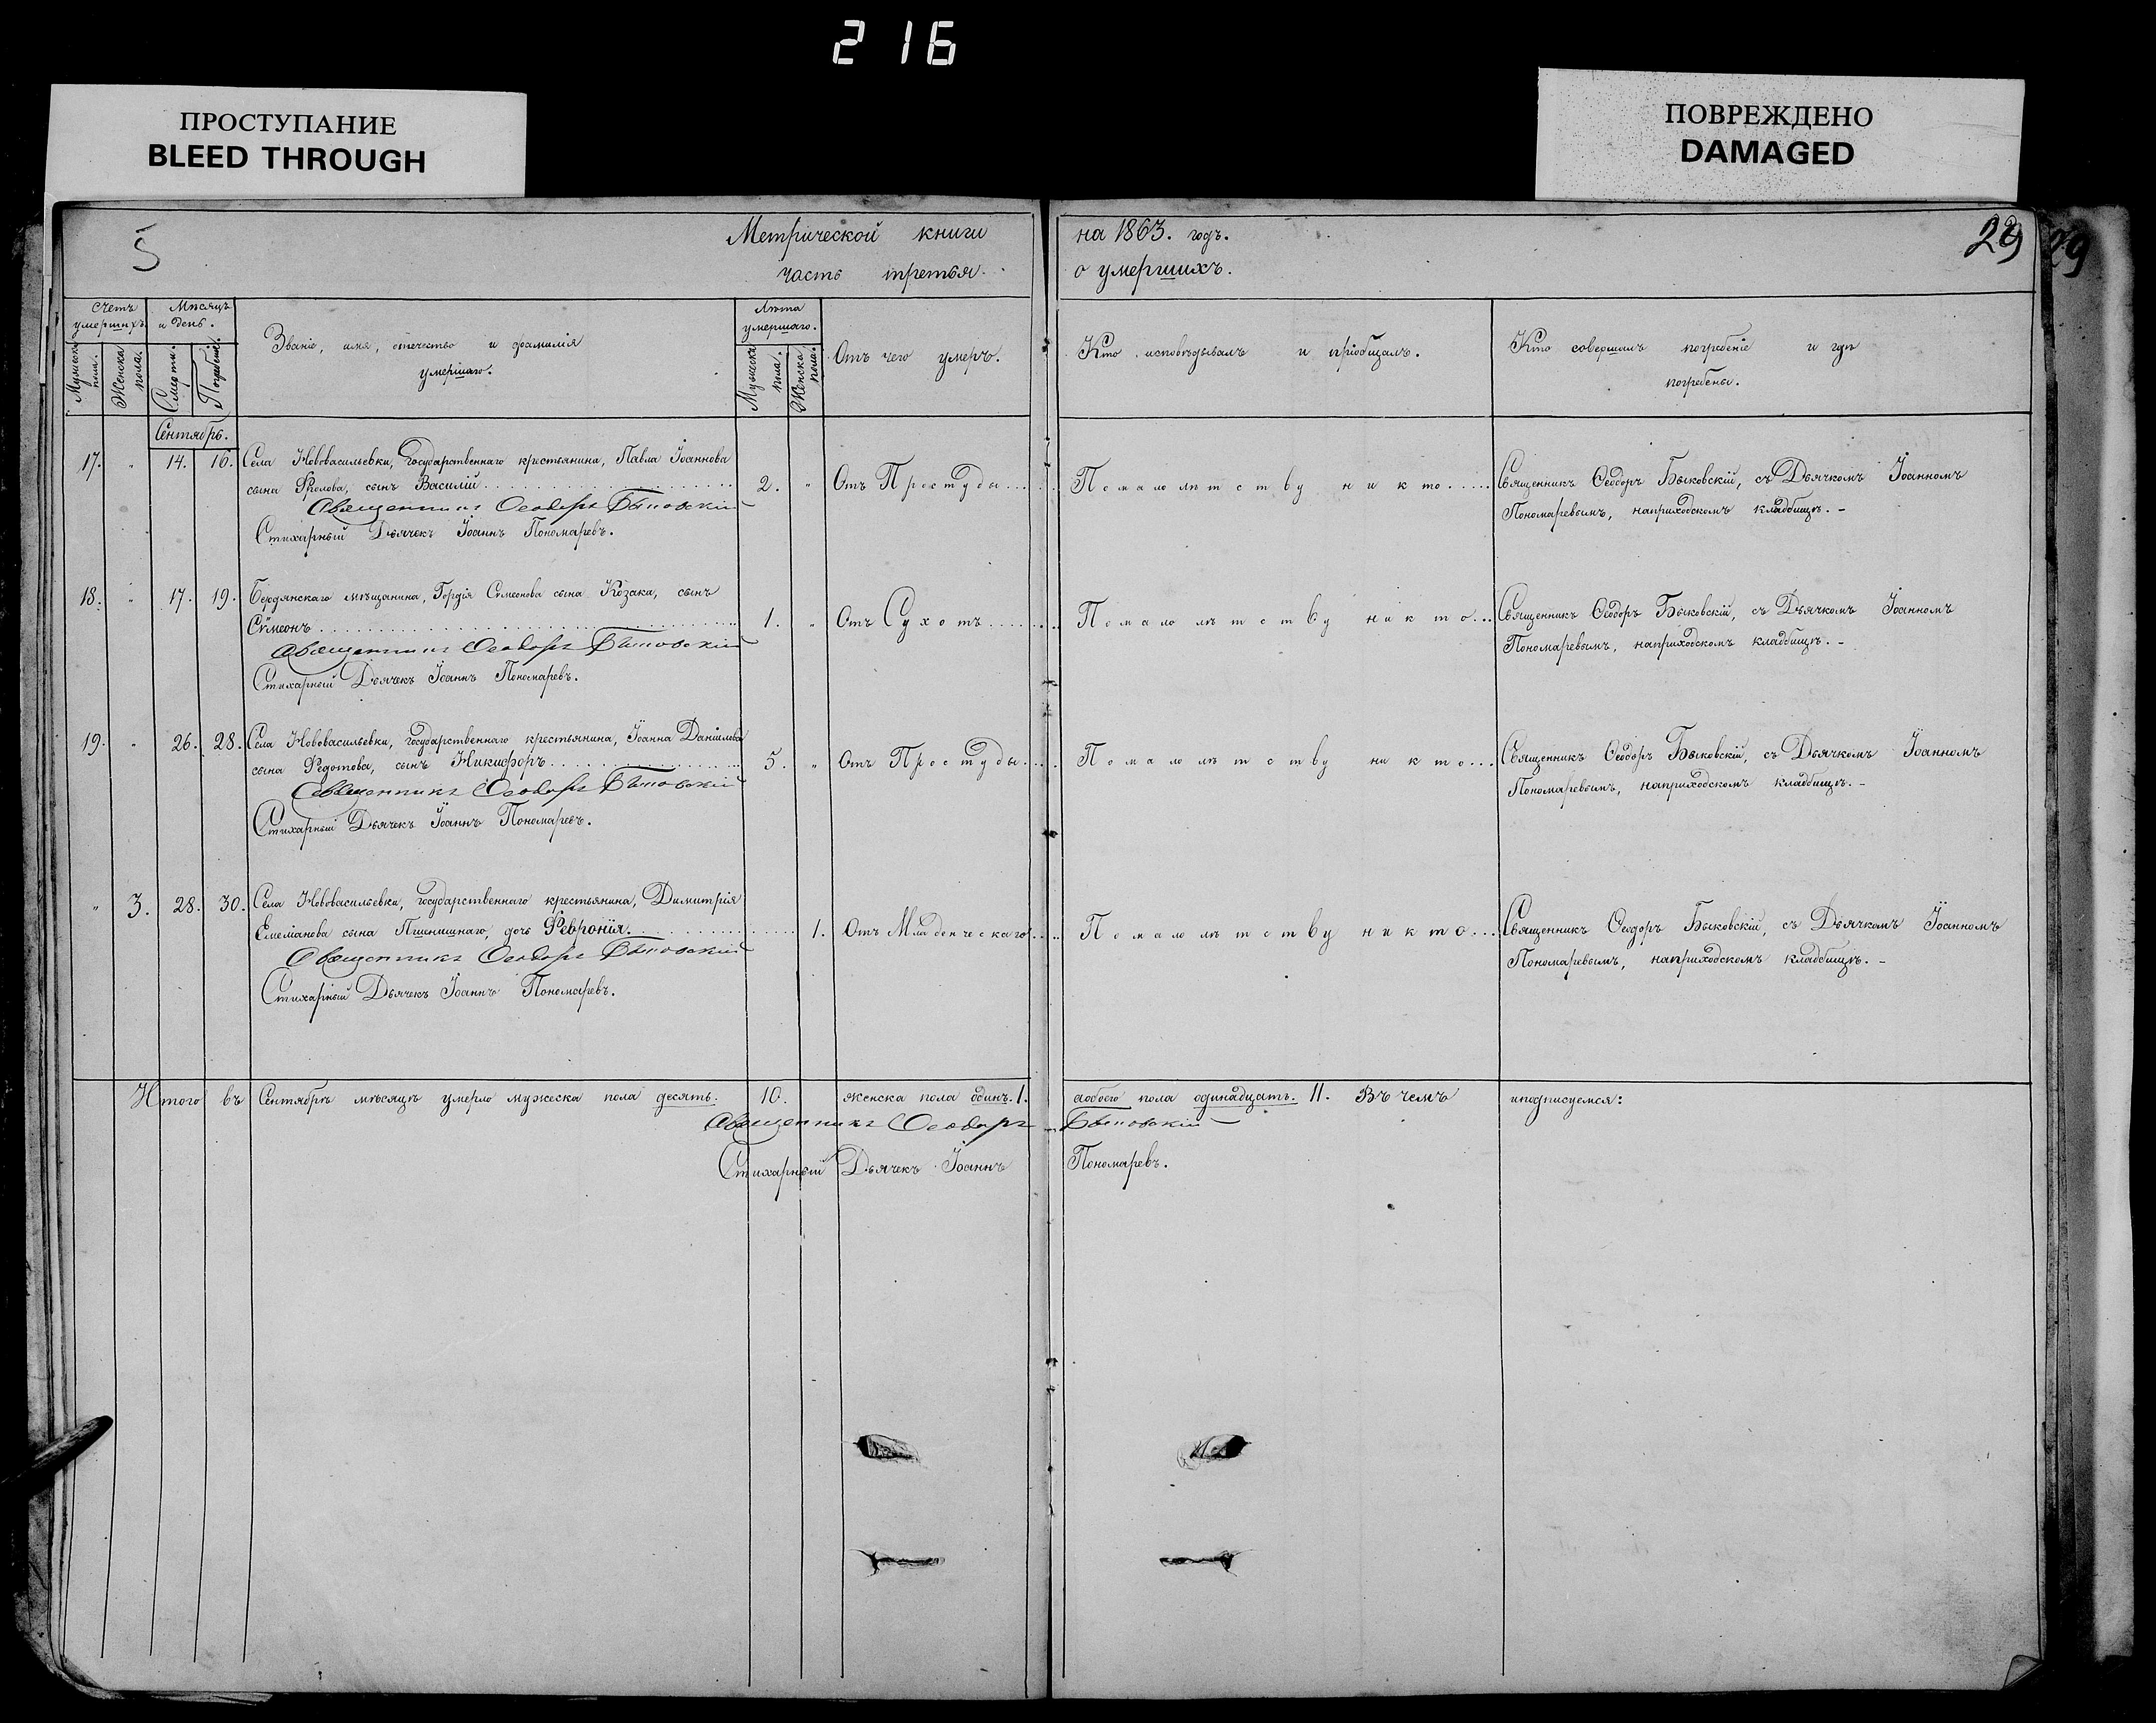 216
ПРОСТУПАНИЕ
BLEED THROUGH
ПОВРЕЖДЕНО
DAMAGED
5
Метрической книги на 1863. годъ.
часть третья о умершихъ.
29
29
Счетъ умершихъ.
Мужеска пола.
Женска пола.
Мѣсяцъ и день.
Смерти.
Погребенiе.
Званіе, имя, отечество и фамилія
умершаго.
Лѣта умершаго.
Мужеска пола.
Женска пола.
Отъ чего умеръ.
Кто исповѣдывалъ и пріобщалъ.
Кто совершалъ погребеніе и гдѣ
погребены.
Сентябрь.
17. " 14. 16. Села Нововасильевки, Государственнаго крестьянина, Павла Іоаннова
сына Фролова, сынъ Василій 2. " Отъ Простуды Помалолѣтству никто Священникъ Ѳеодоръ Быковскій, съ Дьячкомъ Іоанномъ
Пономаревымъ, наприходскомъ кладбищѣ. -
Священникъ Ѳеодоръ Быковскій
Стихарный Дьячекъ Іоаннъ Пономаревъ.
18. " 17. 19. Бердянскаго мѣщанина, Гордія Сѵмеонова сына Козака, сынъ
Сѵмеонъ 1. " Отъ Сухотъ Помалолѣтству никто Священникъ Ѳеодоръ Быковскій, съ Дьячкомъ Іоанномъ
Пономаревымъ, наприходскомъ кладбищѣ. -
Священникъ Ѳеодоръ Быковскій
Стихарный Дьячекъ Іоаннъ Пономаревъ.
19. " 26. 28. Села Нововасильевки, государственнаго крестьянина, Іоанна Даніилова
сына Федотова, сынъ Никифоръ 5. " Отъ Простуды Помалолѣтству никто Священникъ Ѳеодоръ Быковскій, съ Дьячкомъ Іоанномъ
Пономаревымъ, наприходскомъ кладбищѣ. -
Священникъ Ѳеодоръ Быковскій
Стихарный Дьячекъ Іоаннъ Пономаревъ.
" 3. 28. 30. Села Нововасильевки, государственнаго крестьянина, Димитрія
Емеліанова сына Пшенишнаго, дочь Февронія. 1. Отъ Младенческаго Помалолѣтству никто Священникъ Ѳеодоръ Быковскій, съ Дьячкомъ Іоанномъ
Пономаревымъ, наприходскомъ кладбищѣ. -
Священникъ Ѳеодоръ Быковскій
Стихарный Дьячекъ Іоаннъ Пономаревъ.
Итого въ Сентябрѣ мѣсяцѣ умерло мужеска пола десять. 10. женска пола одинъ. 1. аобоего пола одинадцать. 11. Въ чемъ иподписуемся:
Священникъ Ѳеодоръ Быковскій
Стихарный Дьячекъ Іоаннъ Пономаревъ.